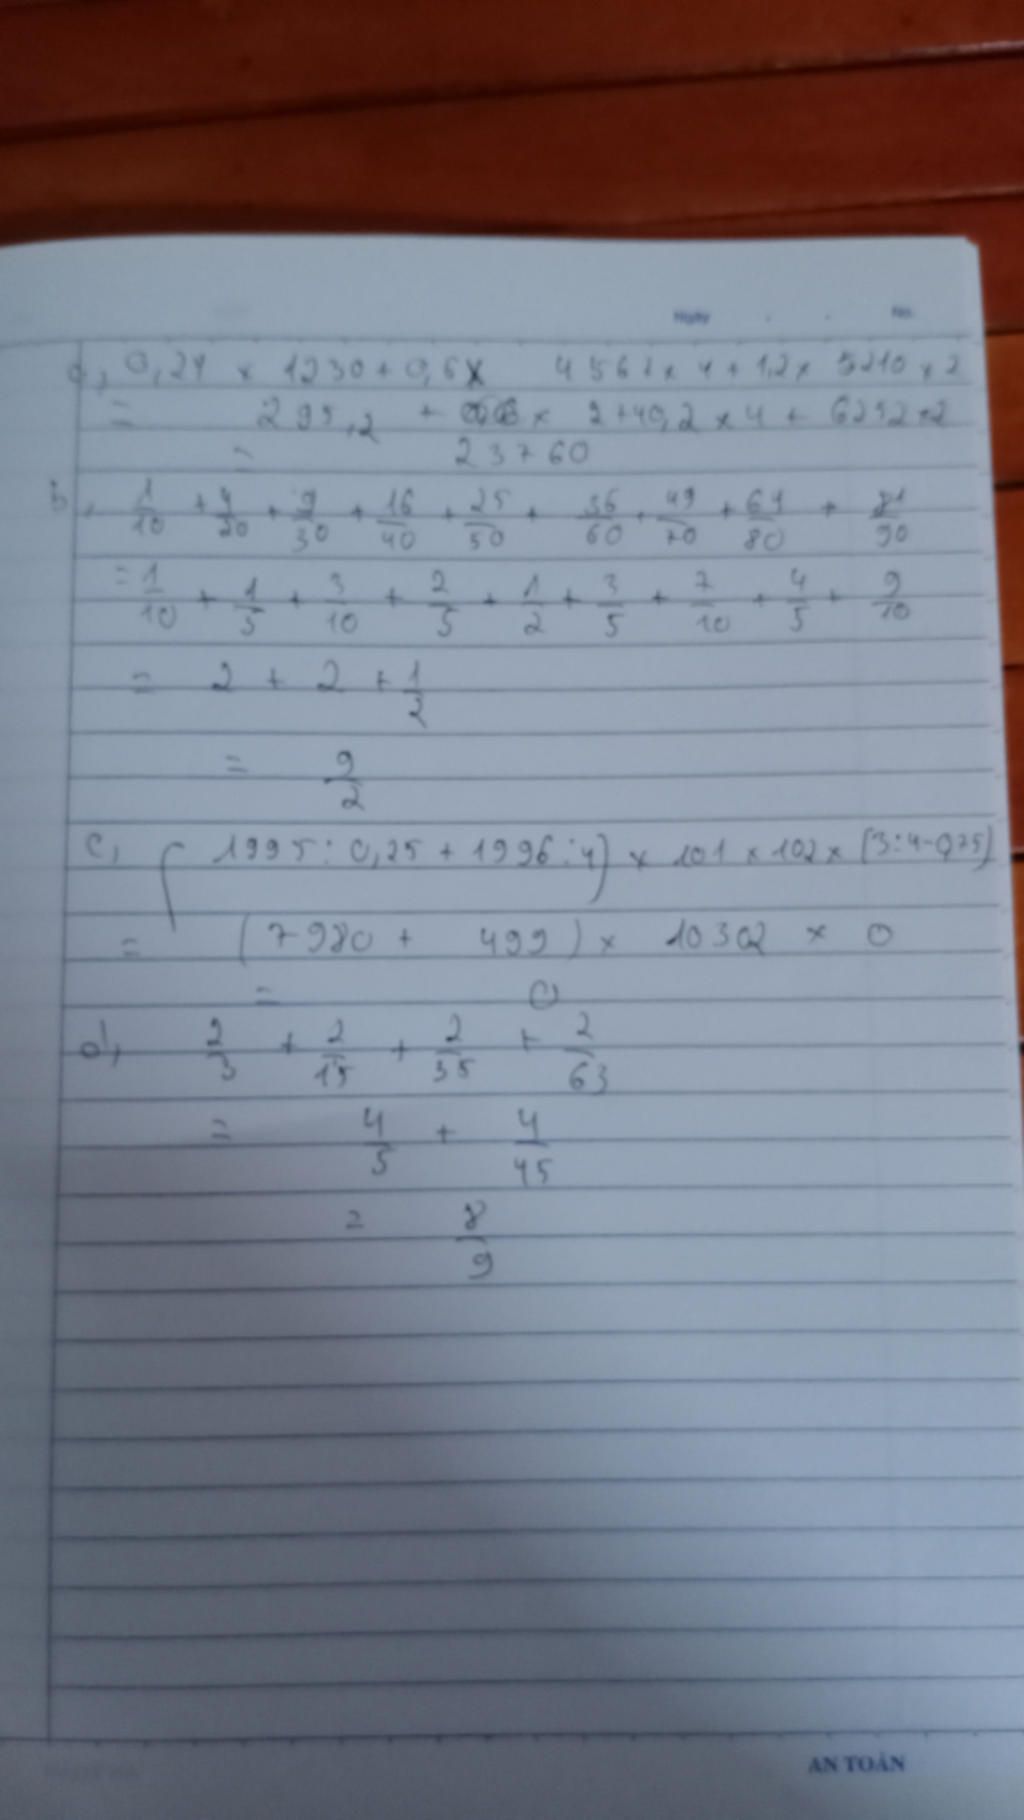 Ngày No.
a, 0,24 x 1230 + 0,6 x 4567 x 4 + 1,2 x 5210 x 2
= 295,2 + x 2740,2 x 4 + 6252 x 2
= 23760
b, 1/10 + 4/20 + 9/30 + 16/40 + 25/50 + 36/60 + 49/70 + 64/80 + 81/90
= 1/10 + 1/5 + 3/10 + 2/5 + 1/2 + 3/5 + 7/10 + 4/5 + 9/10
= 2 + 2 + 1/2
= 9/2
c, (1995 : 0,25 + 1996 : 4) x 101 x 102 x (3 : 4 - 0,75)
= (7980 + 499) x 10302 x 0
= 0
d, 2/3 + 2/15 + 2/35 + 2/63
= 4/5 + 4/45
= 8/9
AN TOÀN